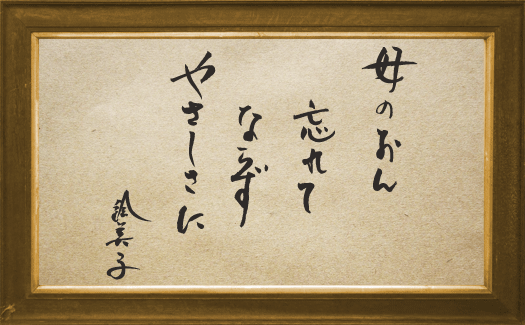 母のおん
忘れて
ならず
やさしさに